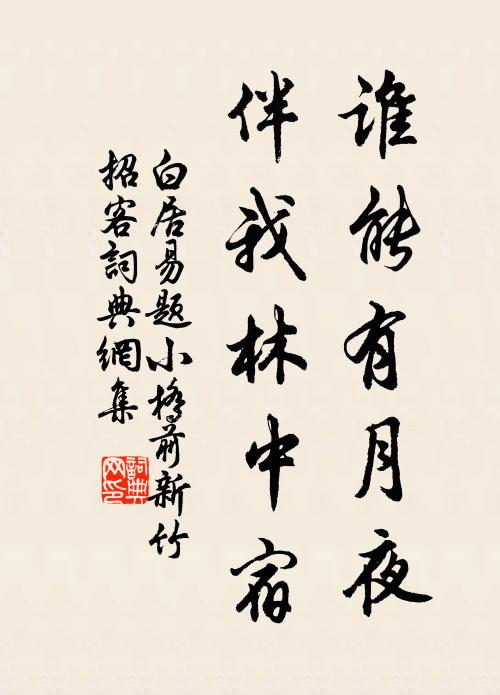 谁能有月夜
伴我林中宿
白居易题小橋前新竹
招客詞典網集
詞典
网印